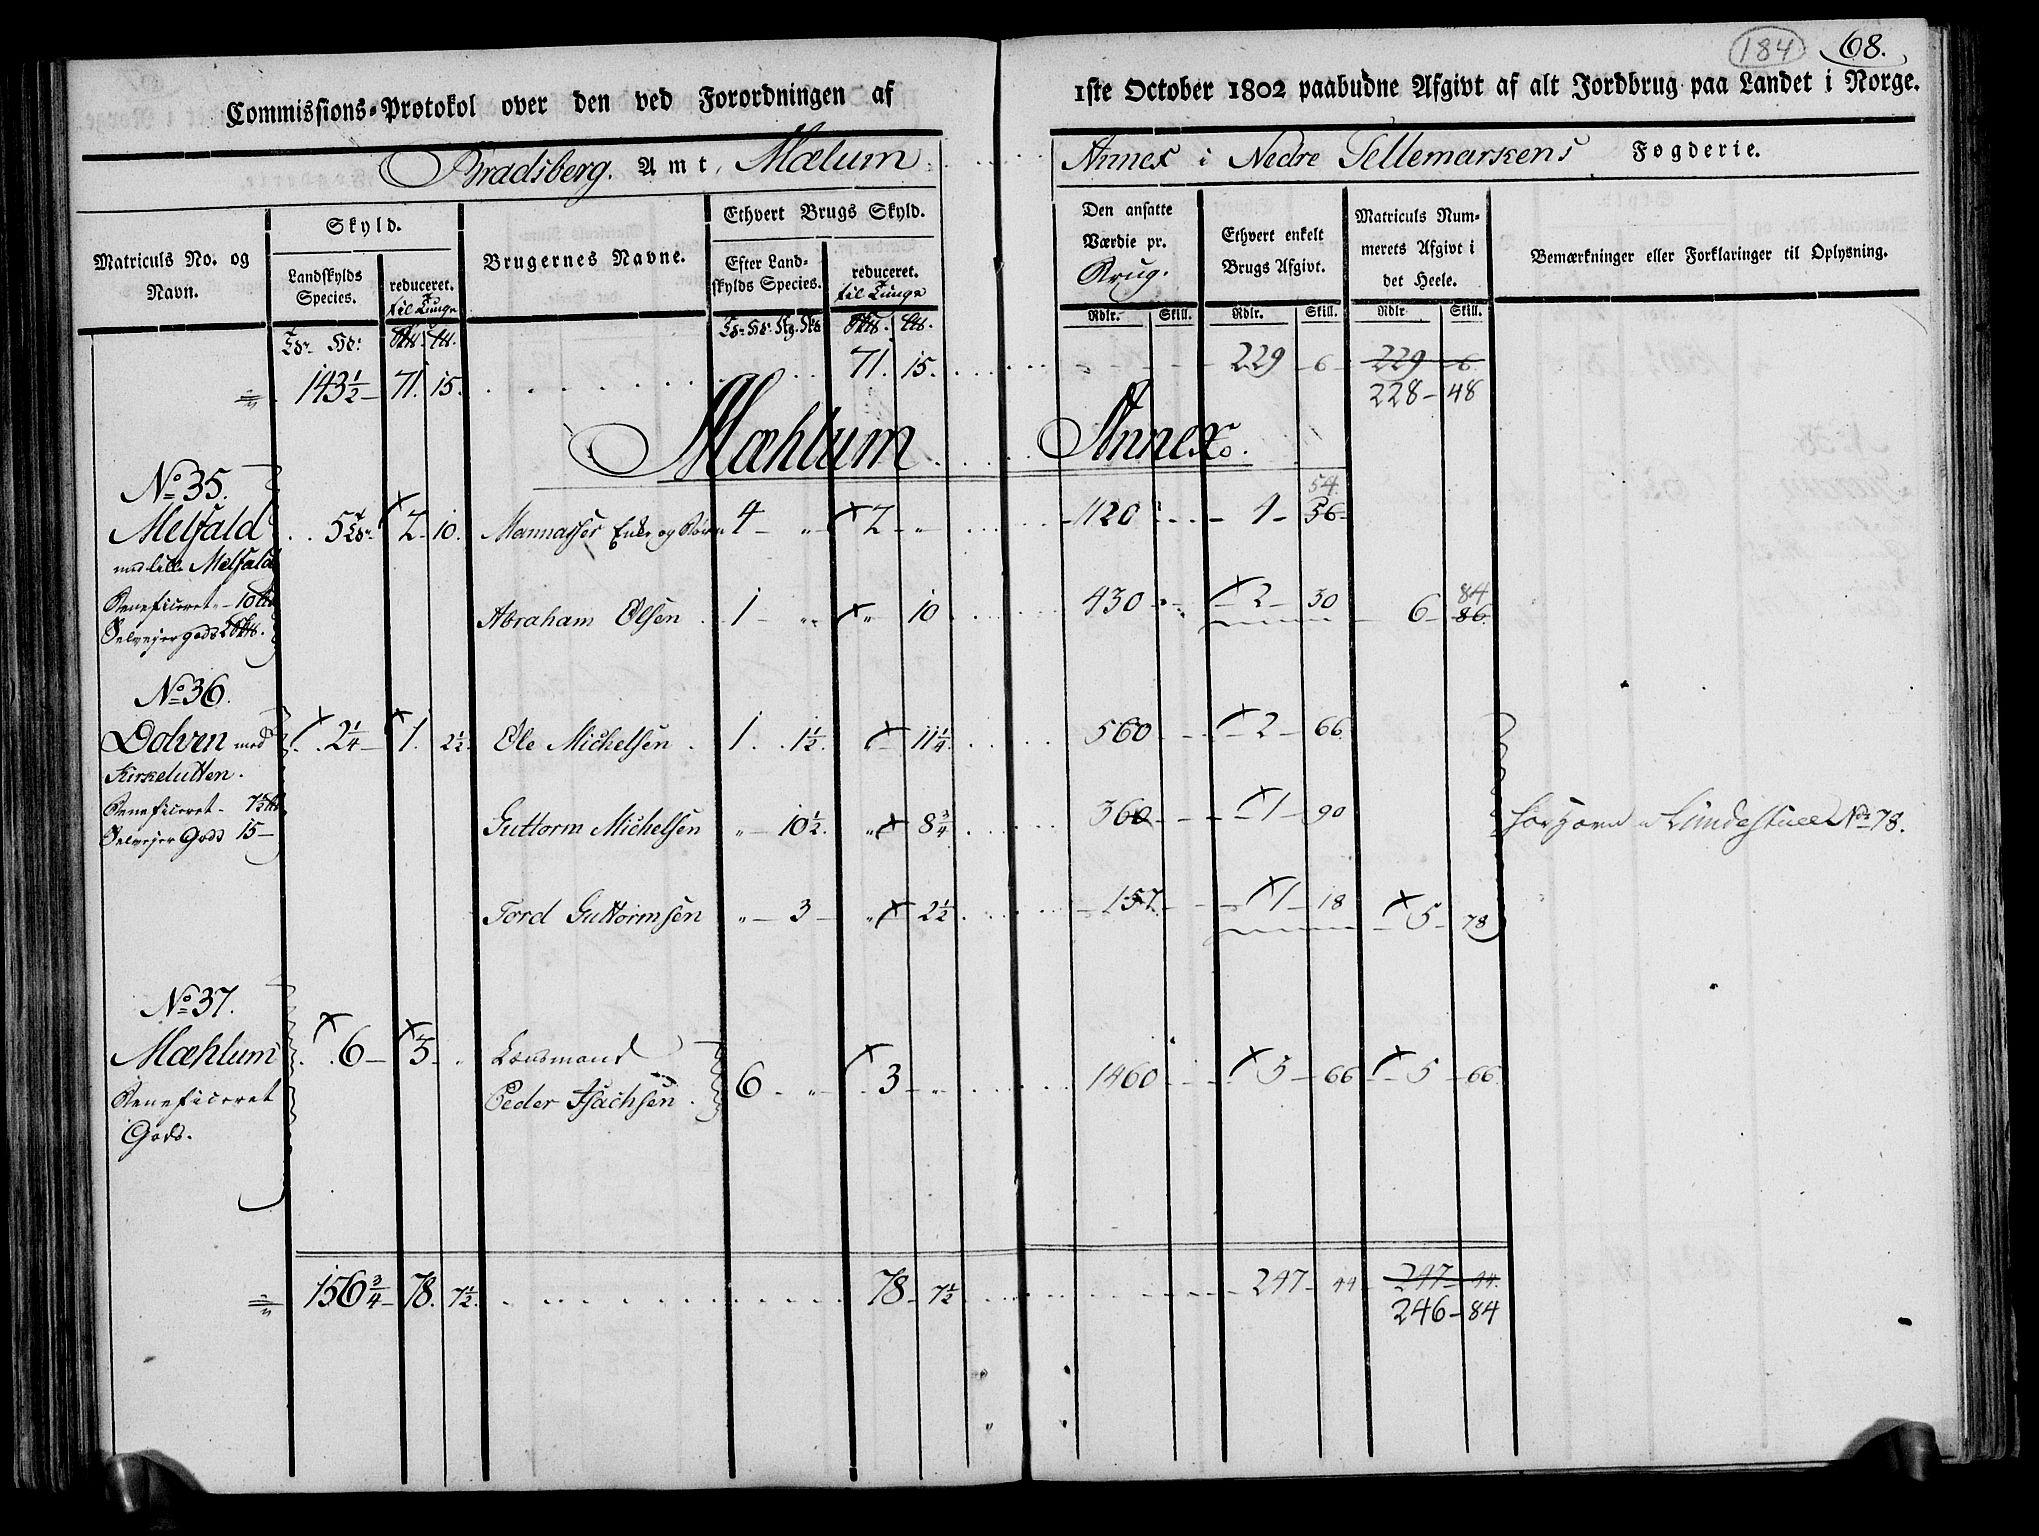 184 68.
Commissions-Protokol over den ved Forordningen af 1ste October 1802 paabudne Afgivt af alt Jordbrug paa Landet i Norge.
Bradsberg. Amt, Mælum Annex i Nedre Tellemarkens Fogderie.
Matriculs No. og Navn.
Skyld.
Landskylds Species.
reduceret. til Tunge
Brugernes Navne.
Ethvert Brugs Skyld.
Efter Landskylds Species.
reduceret. til Tunge
Den ansatte Værdie pr. Brug.
Ethvert enkelt Brugs Afgivt.
Matriculs Nummerets Afgivt i det Heele.
Bemærkninger eller Forklaringer til Oplysning.
Rdlr. Skill. Rdlr. Skill. Rdlr Skill.
143½ 71. 15. 71. 15. 229 6 229 6
228 48
Mæhlum Annex.
No 35.
54
Melfald 5 2 10. Mannasses Enke og 4 " 2 " 1120 1 56
med lille Melfald
Beneficeret 10
84
Abraham Olsen 1 " " 10 430 2 30 6 86
Selvejer gods 2
No 36.
Dolven med 2¼ 1. 2½ Ole Michelsen 1. 1½ 11¼ 560 2 66
Kirkelutten.
Beneficeret 7½
Guttorm Michelsen " 10½ " 8¾ 360 1 90 No 78.
Selvejer Gods 15
Tord Guttormsen " 3 " 2½ 157. 1 18 5 78
No 37.
Mæhlum 6 3 " Lensmand
Peder Isachsen 6 " 3 " 1460 5 66 5 66
Beneficeret
Gods.
156¾ 78. 7½ 78 7½ 247 44 247 44
246 84